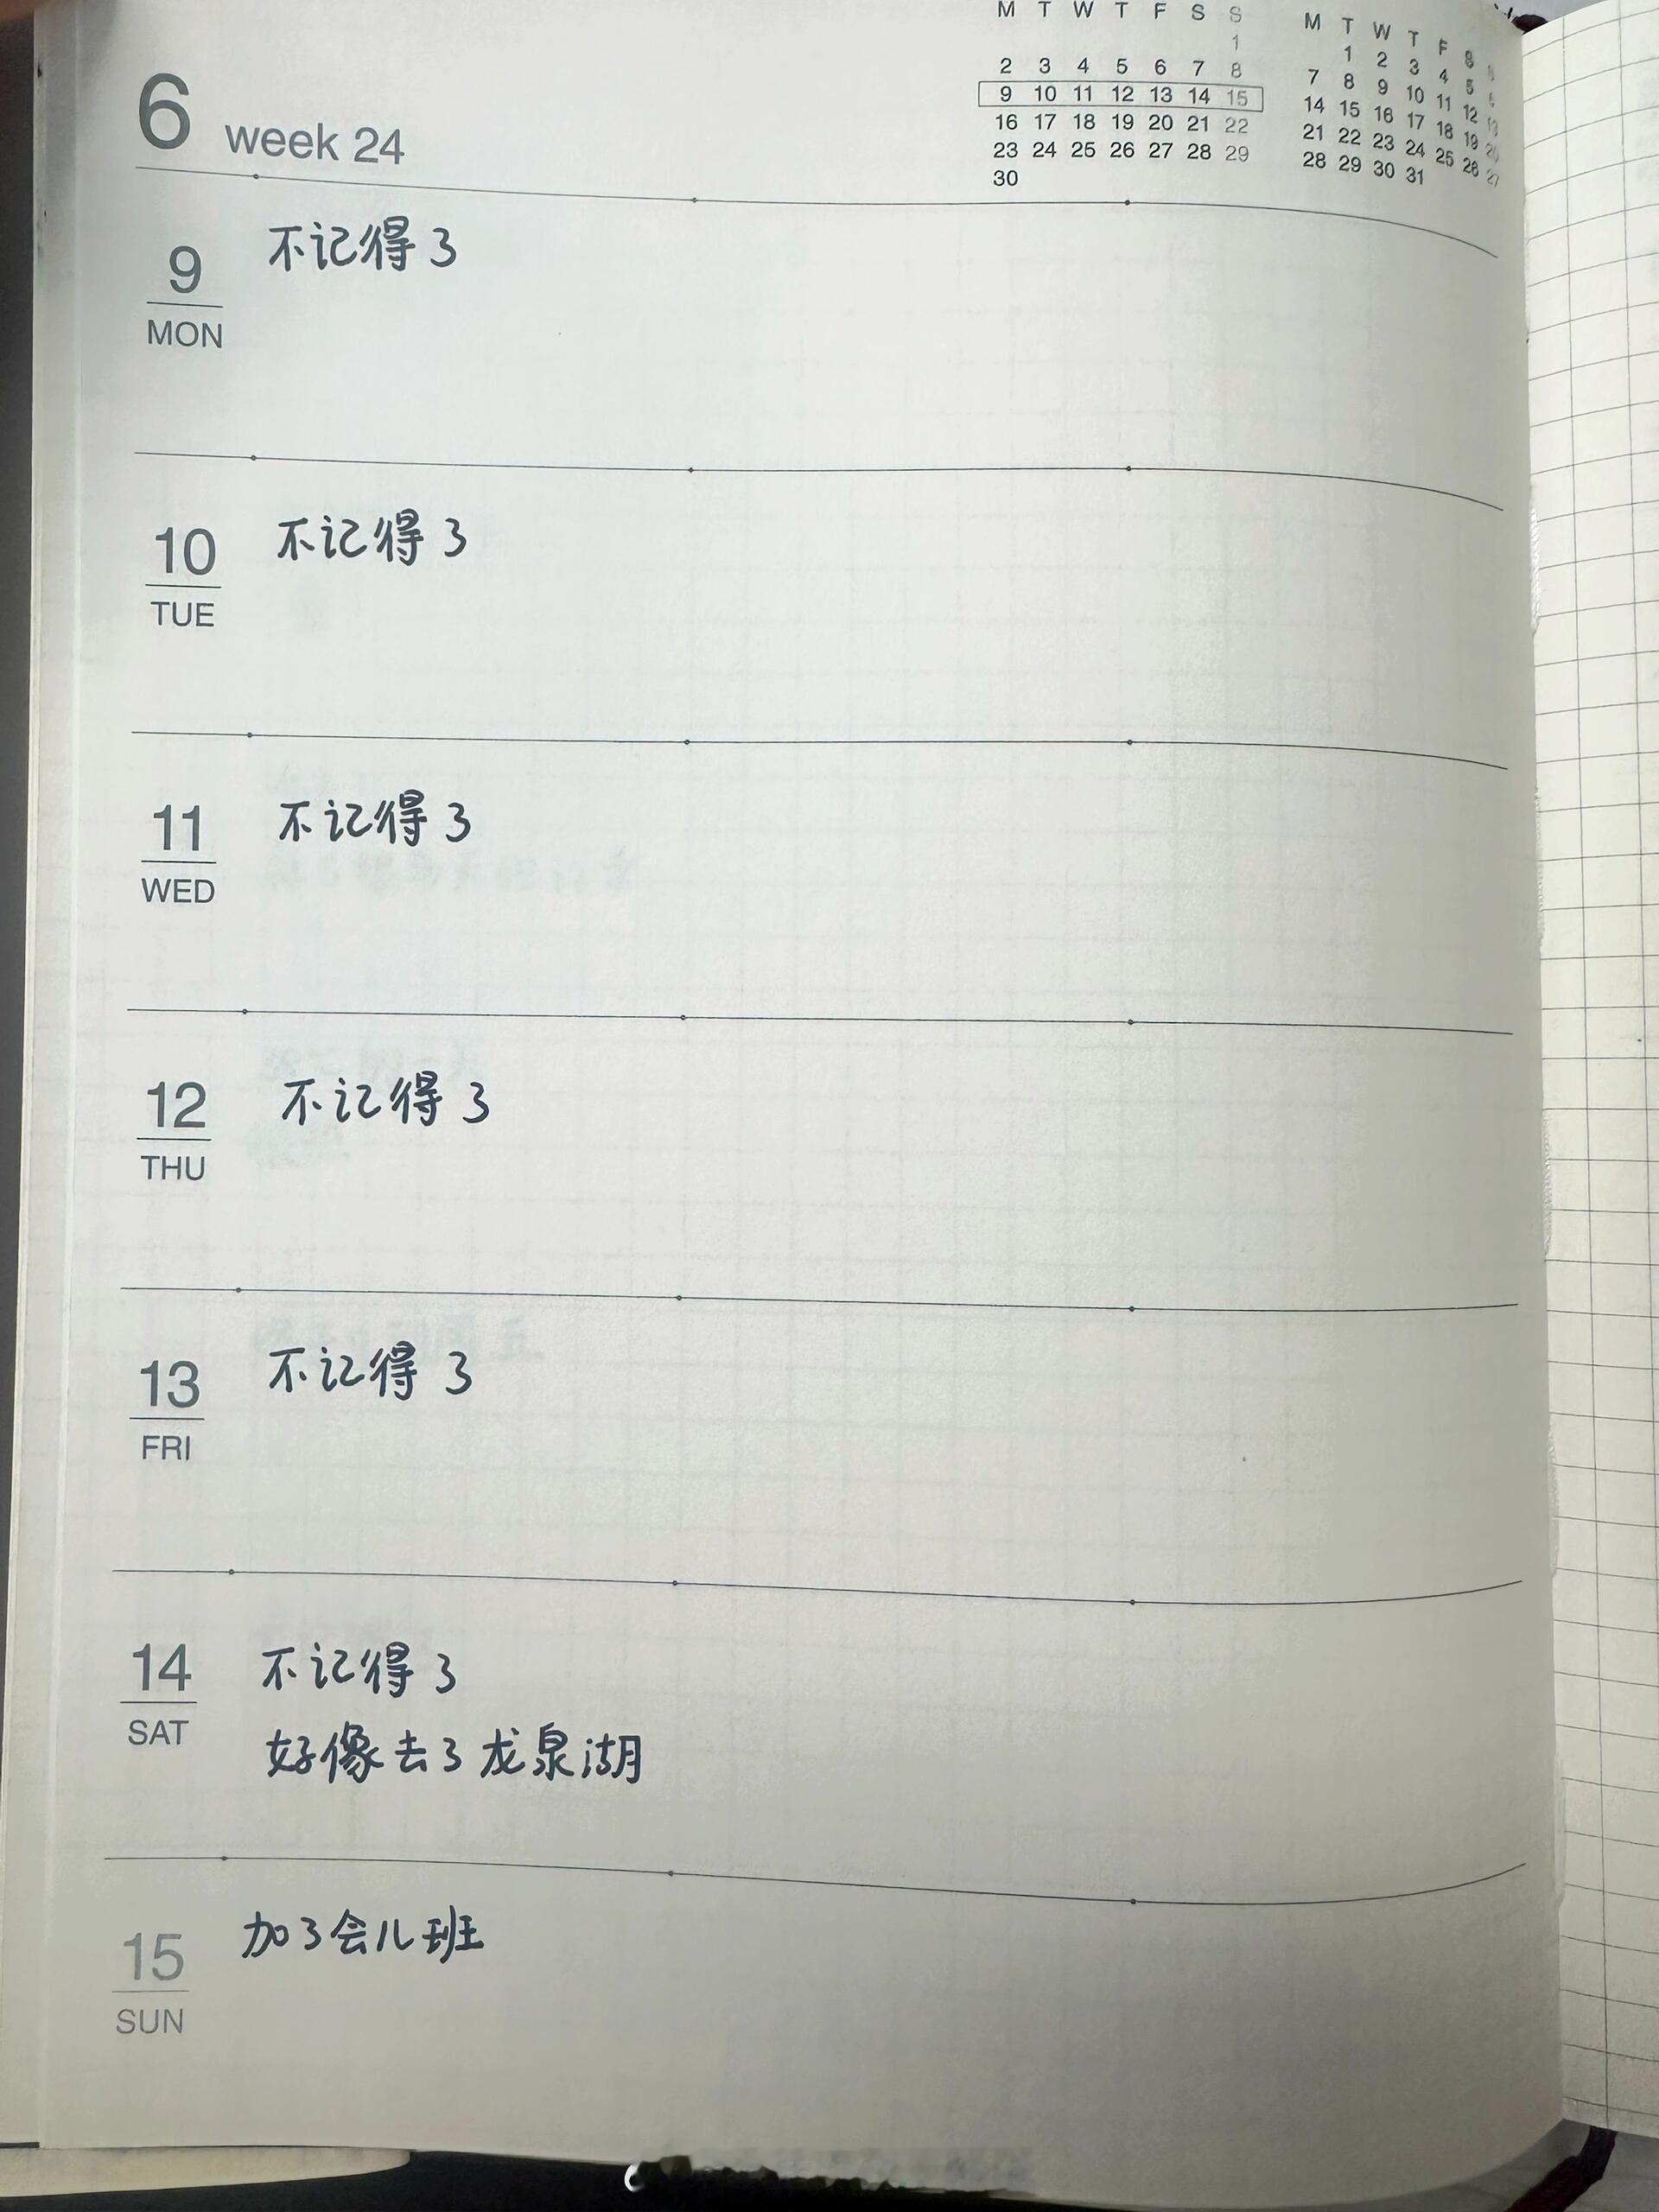 M T W T F S S
1
2 3 4 5 6 7 8
9 10 11 12 13 14 15
16 17 18 19 20 21 22
23 24 25 26 27 28 29
30
M T W T F S
1 2 3 4 5
7 8 9 10 11 12 13
14 15 16 17 18 19 20
21 22 23 24 25 26 27
28 29 30 31
6 week 24
9
MON
不记得了
10
TUE
不记得了
11
WED
不记得了
12
THU
不记得了
13
FRI
不记得了
14
SAT
不记得了
好像去了龙泉湖
15
SUN
加了会儿班